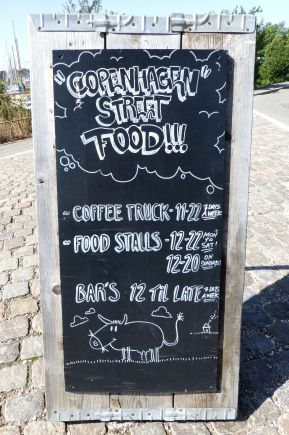 "COPENHAGEN"
STREET
FOOD!!!
~ COFFEE TRUCK - 11-22 7 DAYS A WEEK
~ FOOD STALLS - 12-22 MON SAT
12-20 ON SUNDAYS
BAR'S 12 TIL LATE 7 DAYS A WEEK